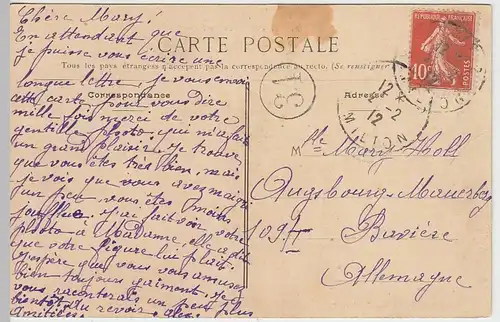 Chère Mary!
En attendant que
je puisse vous écrire une
longue lettre je vous envoie
cette carte pour vous dire
mille fois merci de votre
gentille photo, qui m'a fait
un grand plaisir. Je trouve
que vous êtes très bien, mais
je vois que vous avez maigri
un peu vous êtes moins
joufflue. J'ai fait voir votre
photo à Madame, elle a dit
que votre figure lui plait.
J'espère que vous vous amusez
bien toujours gaiment. Je
vous raconterai un peu plus
bientôt au revoir.
amitiés
CARTE POSTALE
Tous les pays étrangers n'acceptent pas la correspondance au recto. (Se renseigner
Correspondance
Adresse
REPUBLIQUE FRANÇAISE
10
POSTES
12
2
12
LYON
Mlle Mary Holl
Augsbourg-Mauerberg
Bavière
Allemagne